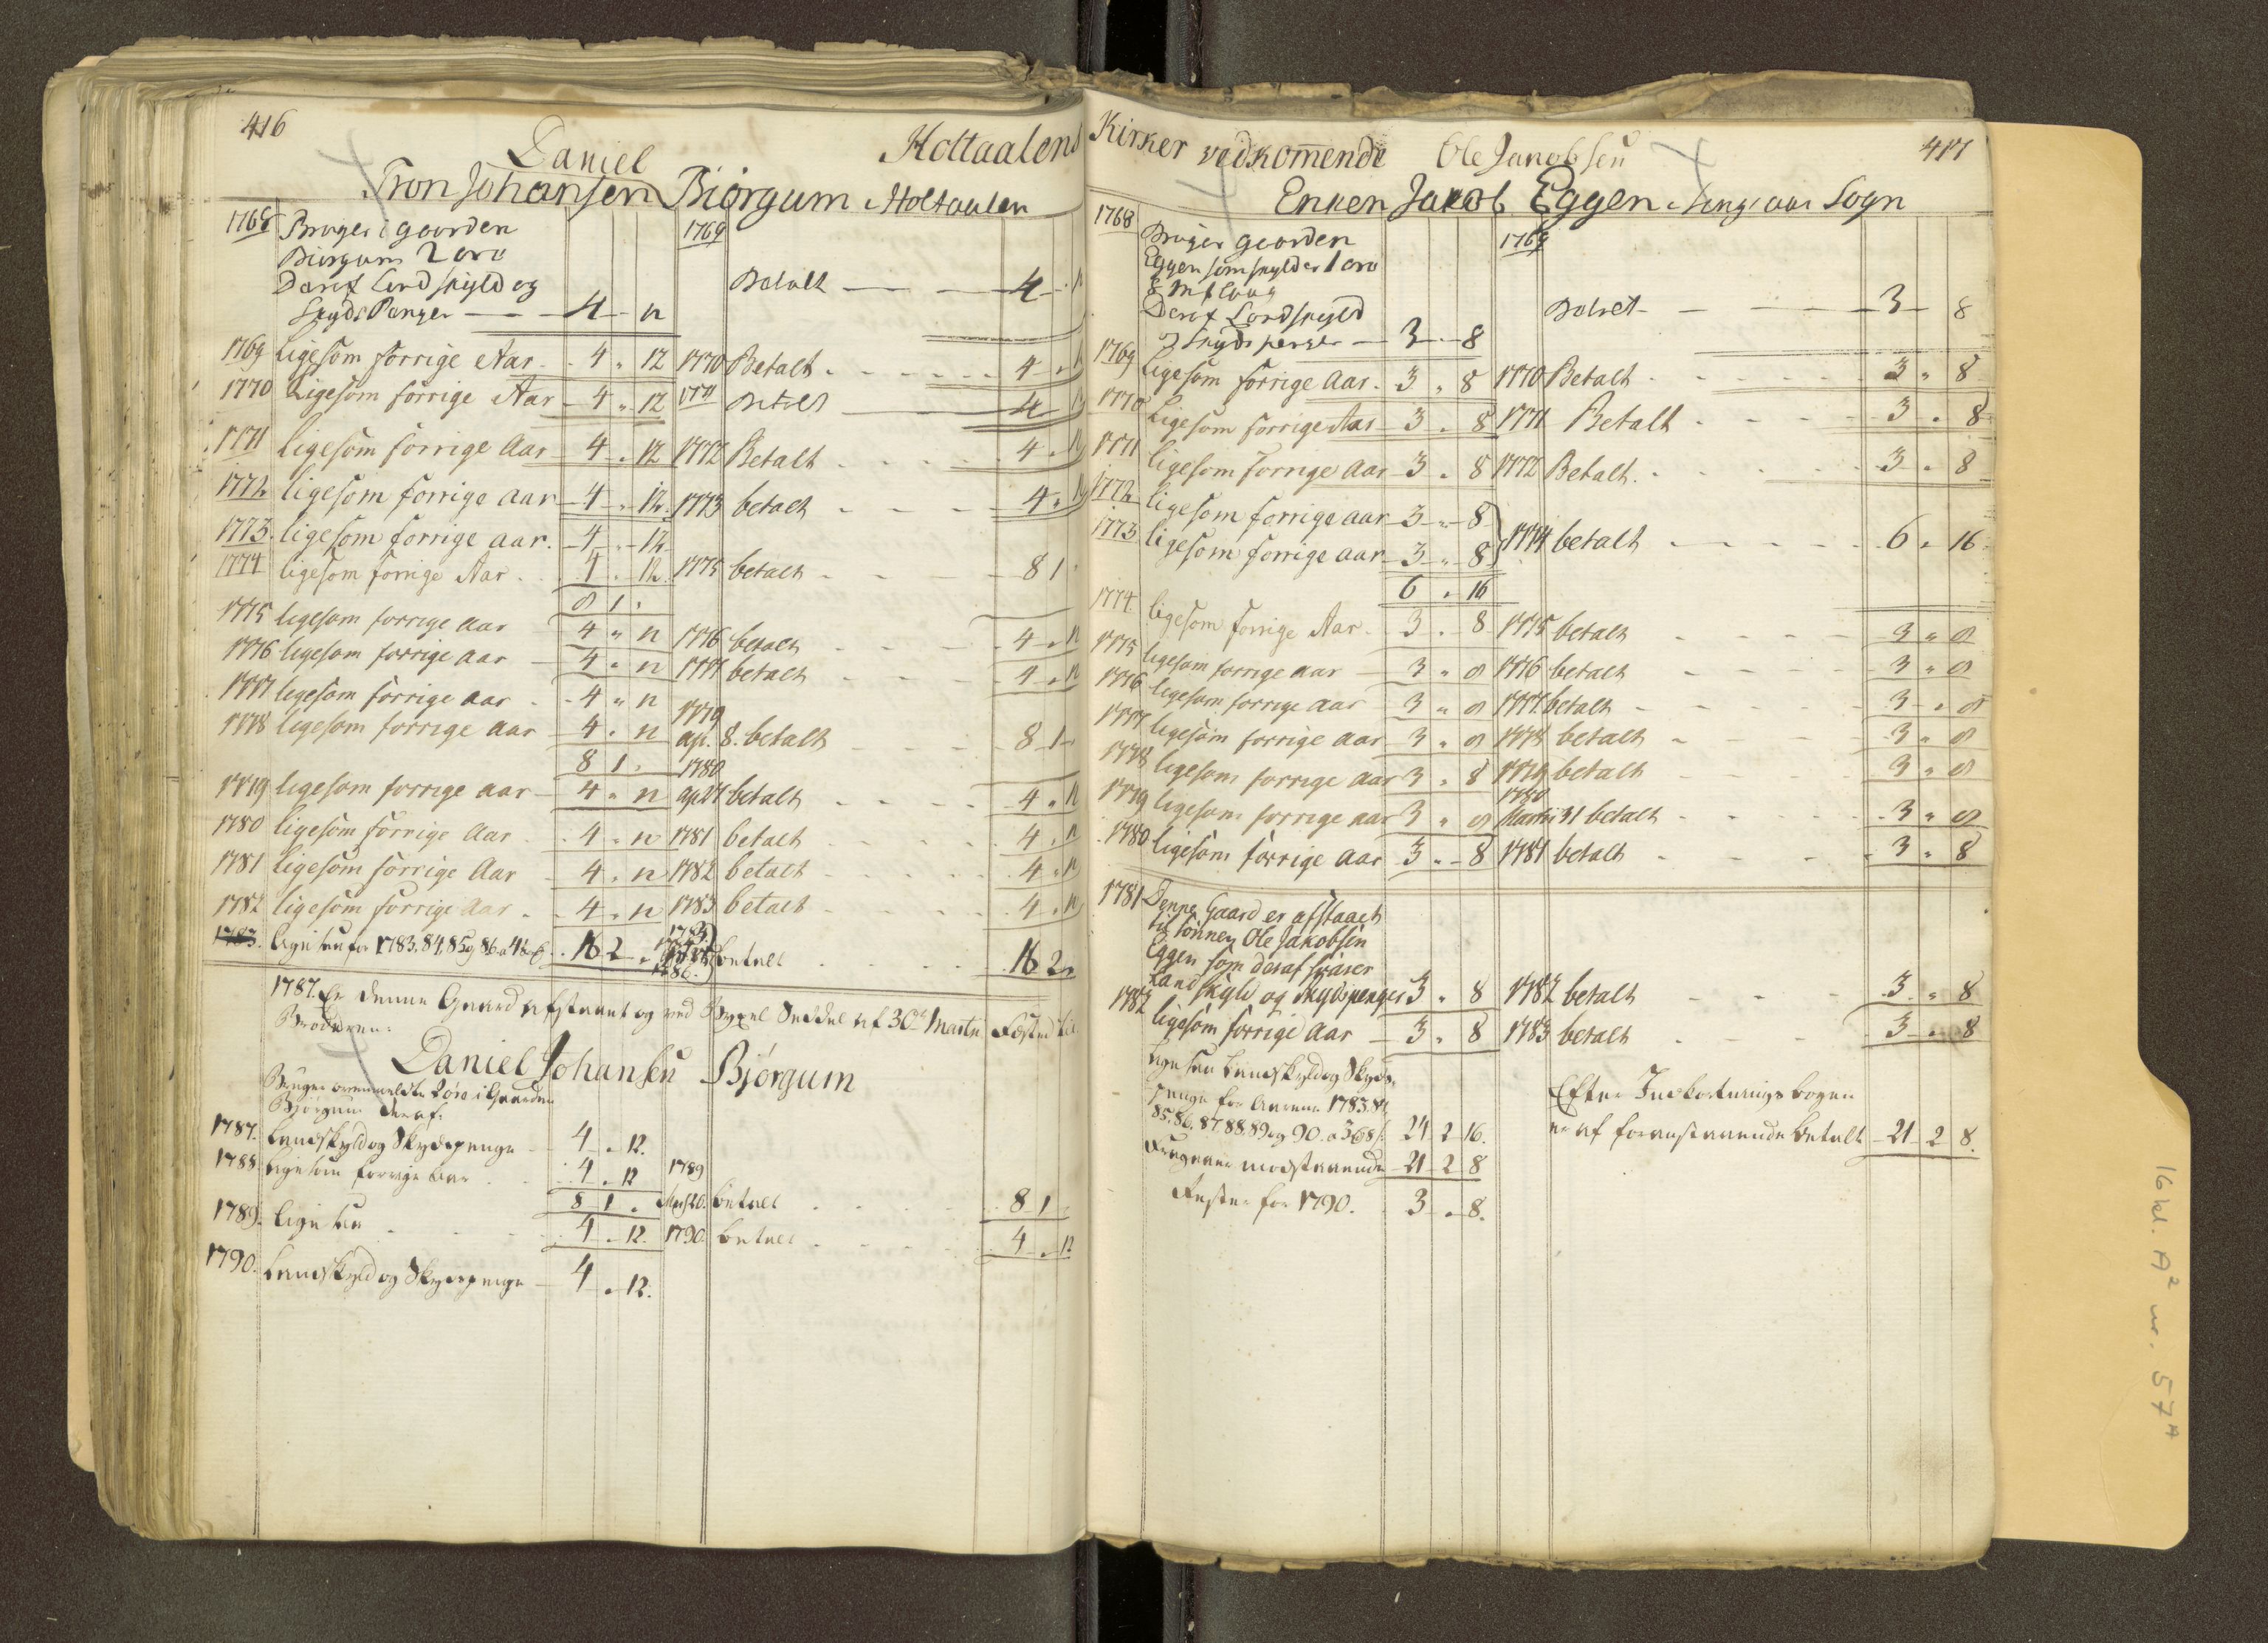 416
Holtaalens
Daniel
Tron Johansen Biörgum i Holtaalen
1768 Bruger i Gaarden
Biörgum 2 öre
Deraf Landskyld og
Skyds Penger — 4 - 12
1769 Betalt — 4 - 12
1769 ligesom forrige Aar - 4 " 12 1770 Betalt 4 " 12
1770 Ligesom forrige Aar - 4 " 12 1771 Betalt 4 12
1771 ligesom forrige Aar 4 " 12 1772 Betalt 4 " 12
1772 ligesom forrige aar 4 " 12 1773 betalt 4 " 12
1773 ligesom forrige aar 4 " 12
1774 ligesom forrige Aar 4 " 12 1775 betalt 8 1 "
8 1 "
1775 ligesom forrige aar 4 " 12 1776 betalt 4 " 12
1776 ligesom forrige aar 4 " 12 1777 betalt 4 " 12
1777 ligesom forrige aar 4 " 12
1778 ligesom forrige aar 4 " 12 1779 ap. 8. betalt 8 1 "
8 1 "
1779 ligesom forrige aar 4 " 12 1780 ap 27 betalt 4 " 12
1780 ligesom forrige Aar 4 " 12 1781 betalt 4 " 12
1781 ligesom forrige Aar 4 " 12 1782 betalt 4 " 12
1782 ligesom forrige Aar 4 " 12 1783 betalt 4 " 12
1783. ligesaa for 1783, 84, 85 og 86 a 4 16 2 " 1786. betalt 16 2 "
1787. Er denne Gaard afstaaet og ved Bygsel Seddel af 30te Martii Fæsted til
Broderen:
Daniel Johansen Bjørgum
Bruger ovenmeldte 2 öre i Gaarden
Bjørgum deraf:
1787. Landskyld og Skydspenge 4 " 12.
1788 ligesom forrige Aar 4 " 12
8 1 " 1789 betalt 8 1 "
1789. ligesaa 4 " 12. 1790. betalt 4 " 12
1790. Landskyld og Skydspenge 4 " 12.
Kirker vedkommende Ole Jacobsen
417
Enken Jakob Eggen i Singsaas Sogn
1768 Bruger Gaarden
Eggen som skylder 1 öre
Deraf Landskyld
og Skyds penger — 3 - 8
1769 Betalt — 3 - 8
1769 ligesom forrige Aar 3 " 8 1770 Betalt 3 " 8
1770 Ligesom forrige Aar 3 " 8 1771 Betalt 3 " 8
1771 ligesom forrige Aar 3 " 8 1772 Betalt 3 " 8
1772 ligesom forrige aar 3 " 8
1773 ligesom forrige aar 3 " 8 1774 betalt 6 " 16
6 " 16
1774 ligesom forrige Aar 3 " 8 1775 betalt 3 " 8
1775 ligesom forrige aar 3 " 8 1776 betalt 3 " 8
1776 ligesom forrige aar 3 " 8 1777 betalt 3 " 8
1777 ligesom forrige aar 3 " 8 1778 betalt 3 " 8
1778 ligesom forrige aar 3 " 8 1779 betalt 3 " 8
1779 ligesom forrige aar 3 " 8 1780 Martii 31 betalt 3 " 8
1780 ligesom forrige Aar 3 " 8 1781 betalt 3 " 8
1781 Denne Gaard er afstaaet
til Sönnen Ole Jakobsen
Eggen som deraf svarer
Landskyld og Skydspenger 3 " 8 1782 betalt 3 " 8
1782 ligesom forrige Aar 3 " 8 1783 betalt 3 " 8
ligesaa Landskyld og Skyds-
penge for Aarene 1783. 84.
85. 86. 87. 88. 89 og 90. a 3 " 8 s 24 2 16.
Efter Inkasserings bogen
er af foranstaaende betalt 21 2 8.
Fragaaer modstaaende 21 2 8
Rester for 1790. 3 " 8.
16 kl. A² nr. 57ᴬ